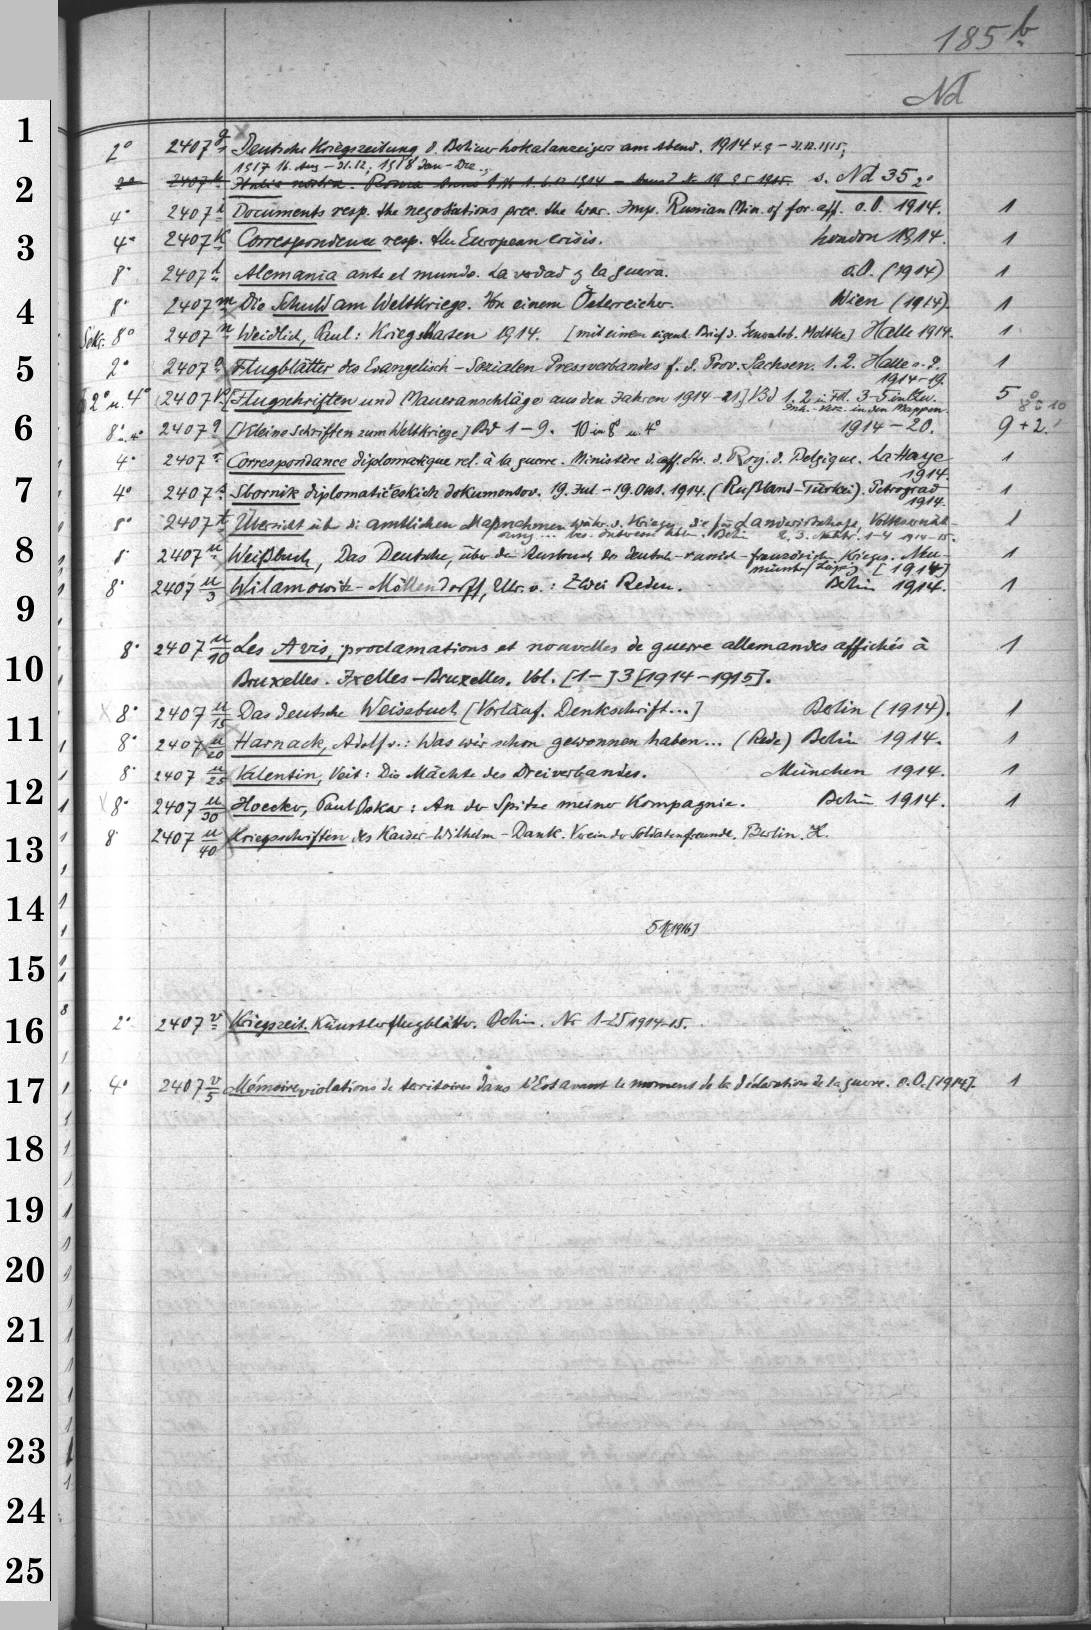 185 b
Nd
2° 2407 g Deutsche Kriegszeitung d. Berliner Lokalanzeigers am Abend. 1914 4.9 – 31.12.1915,
1917 16. Aug – 31.12; 1918 Jan – Dez.;
2° 2407 h Italia nostra. Roma Anno 1 N. 1. 6.12.1914 – s. Nd 35 2°
4° 2407 i Documents resp. the negotiations prec. the war. Imp. Russian Min. of for. aff. o.O. 1914. 1
4° 2407 k Correspondence resp. the European crisis. London 1914. 1
8° 2407 l Alemania ante el mundo. La verdad y la guerra. o.O. (1914) 1
8° 2407 m Die Schuld am Weltkriege. Von einem Österreicher. Wien (1914). 1
8° 2407 n Weidlich, Paul: Kriegshasen 1914. [mit einem eigenh. Brief d. Moltke] Halle 1914. 1
2° 2407 o Flugblätter des Evangelisch-Sozialen Pressverbandes f. d. Prov. Sachsen. 1. 2. Halle 1
1914–19.
2° u. 4° 2407 p [Flugschriften und Maueranschläge aus den Jahren 1914–21] Bd 1. 2 in Fol. 3–5 in 4°. 5
in den Mappen.
8° u. 4° 2407 q [Kleine Schriften zum Weltkriege] Bd 1–9. 10 in 8° u. 4° 1914–20. 9+2.
4° 2407 r Correspondance diplomatique rel. à la guerre. Ministère d. aff. étr. d. Roy. d. Belgique. La Haye 1
1914.
4° 2407 s Sbornik diplomatičeskich dokumentov. 19. Jul – 19. Okt. 1914. (Rußland–Türkei). Petrograd 1
1914.
8° 2407 t Übersicht üb. di. amtlichen Maßnahmen währ. d. Krieges, die für Landwirtschaft, 1
Berlin 1914–15.
8° 2407 u Weißbuch, Das Deutsche, über den Ausbruch des deutsch-russisch-französisch. Krieges. 1
Leipzig [1914]
8° 2407 u/3 Wilamowitz-Möllendorff, Ulr. v.: Zwei Reden. Berlin 1914. 1
8° 2407 u/10 Les Avis, proclamations et nouvelles de guerre allemandes affichés à 1
Bruxelles. Ixelles–Bruxelles. Vol. [1–] 3 [1914–1915].
8° 2407 u/15 Das deutsche Weissbuch [Vorläuf. Denkschrift...] Berlin (1914). 1
8° 2407 u/20 Harnack, Adolf v.: Was wir schon gewonnen haben... (Rede) Berlin 1914. 1
8° 2407 u/25 Valentin, Veit: Die Mächte des Dreiverbandes. München 1914. 1
8° 2407 u/30 Hoecker, Paul Oskar: An der Spitze meiner Kompagnie. Berlin 1914. 1
8° 2407 u/40 Kriegsschriften des Kaiser-Wilhelm-Dank. Verein der Soldatenfreunde. Berlin. H.
51[1916]
2° 2407 v Kriegszeit. Künstlerflugblätter. Berlin. Nr 1–25 1914–15.
4° 2407 v/5 Mémoire violations de territoires dans l'Est avant le moment de la déclaration de la guerre. o.O. [1914]. 1
1
2
3
4
5
6
7
8
9
10
11
12
13
14
15
16
17
18
19
20
21
22
23
24
25